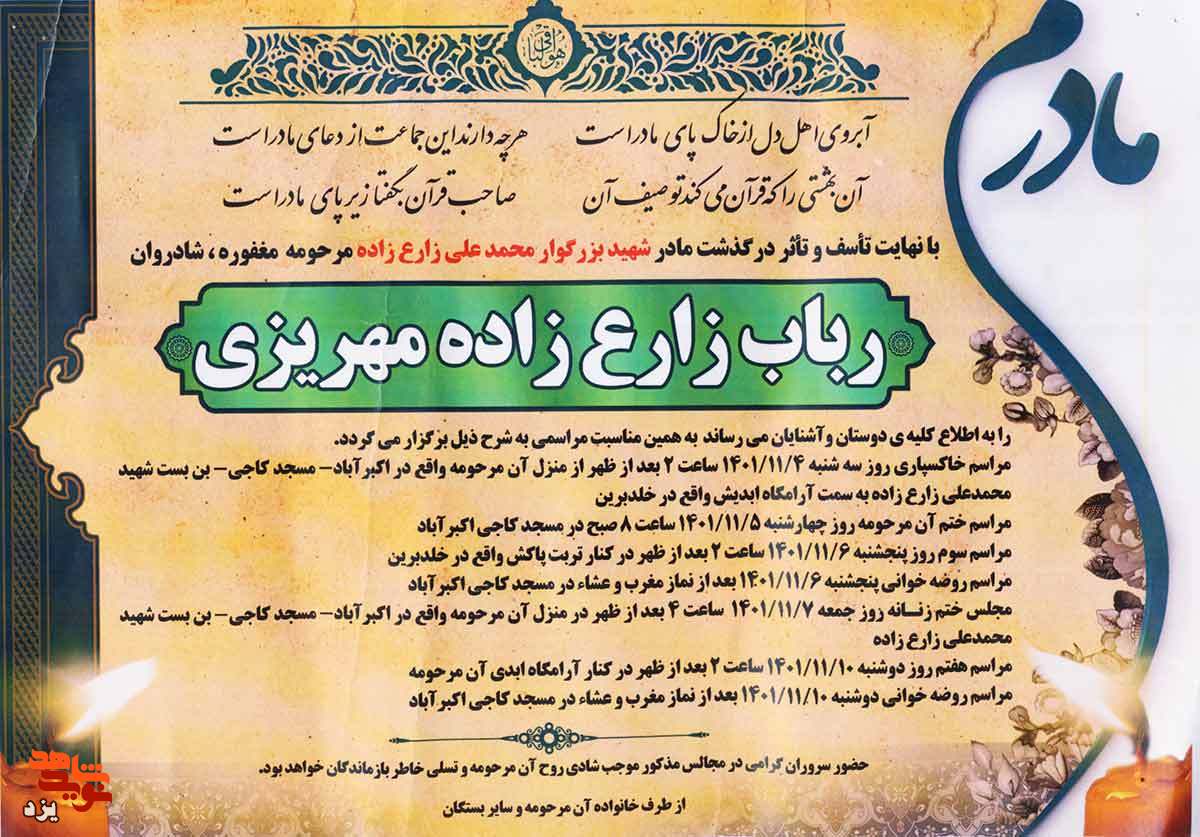 هو الباقی
مادرم
آبروی اهل دل از خاک پای مادر است هرچه دارند این جماعت از دعای مادر است
آن بهشتی را که قرآن می کند توصیف آن صاحب قرآن بگفتا زیر پای مادر است
با نهایت تأسف و تأثر درگذشت مادر شهید بزرگوار محمد علی زارع زاده مرحومه مغفوره ، شادروان
رباب زارع زاده مهریزی
را به اطلاع کلیه ی دوستان و آشنایان می رساند به همین مناسبت مراسمی به شرح ذیل برگزار می گردد.
مراسم خاکسپاری روز سه شنبه ۱۴۰۱/۱۱/۴ ساعت ۲ بعد از ظهر از منزل آن مرحومه واقع در اکبرآباد– مسجد کاجی– بن بست شهید
محمدعلی زارع زاده به سمت آرامگاه ابدیش واقع در خلدبرین
مراسم ختم آن مرحومه روز چهارشنبه ۱۴۰۱/۱۱/۵ ساعت ۸ صبح در مسجد کاجی اکبرآباد
مراسم سوم روز پنجشنبه ۱۴۰۱/۱۱/۶ ساعت ۲ بعد از ظهر در کنار تربت پاکش واقع در خلدبرین
مراسم روضه خوانی پنجشنبه ۱۴۰۱/۱۱/۶ بعد از نماز مغرب و عشاء در مسجد کاجی اکبرآباد
مجلس ختم زنـانه روز جمعه ۱۴۰۱/۱۱/۷ ساعت ۴ بعد از ظهر در منزل آن مرحومه واقع در اکبرآباد– مسجد کاجی– بن بست شهید
محمدعلی زارع زاده
مراسم هفتم روز دوشنبه ۱۴۰۱/۱۱/۱۰ ساعت ۲ بعد از ظهر در کنار آرامگاه ابدی آن مرحومه
مراسم روضه خوانی دوشنبه ۱۴۰۱/۱۱/۱۰ بعد از نماز مغرب و عشاء در مسجد کاجی اکبرآباد
حضور سروران گرامی در مجالس مذکور موجب شادی روح آن مرحومه و تسلی خاطر بازماندگان خواهد بود.
از طرف خانواده آن مرحومه و سایر بستگان
نوید شاهد
یزد